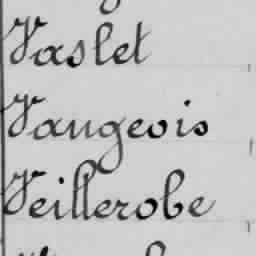 Vaslet
Vaugeois
Veillerobe